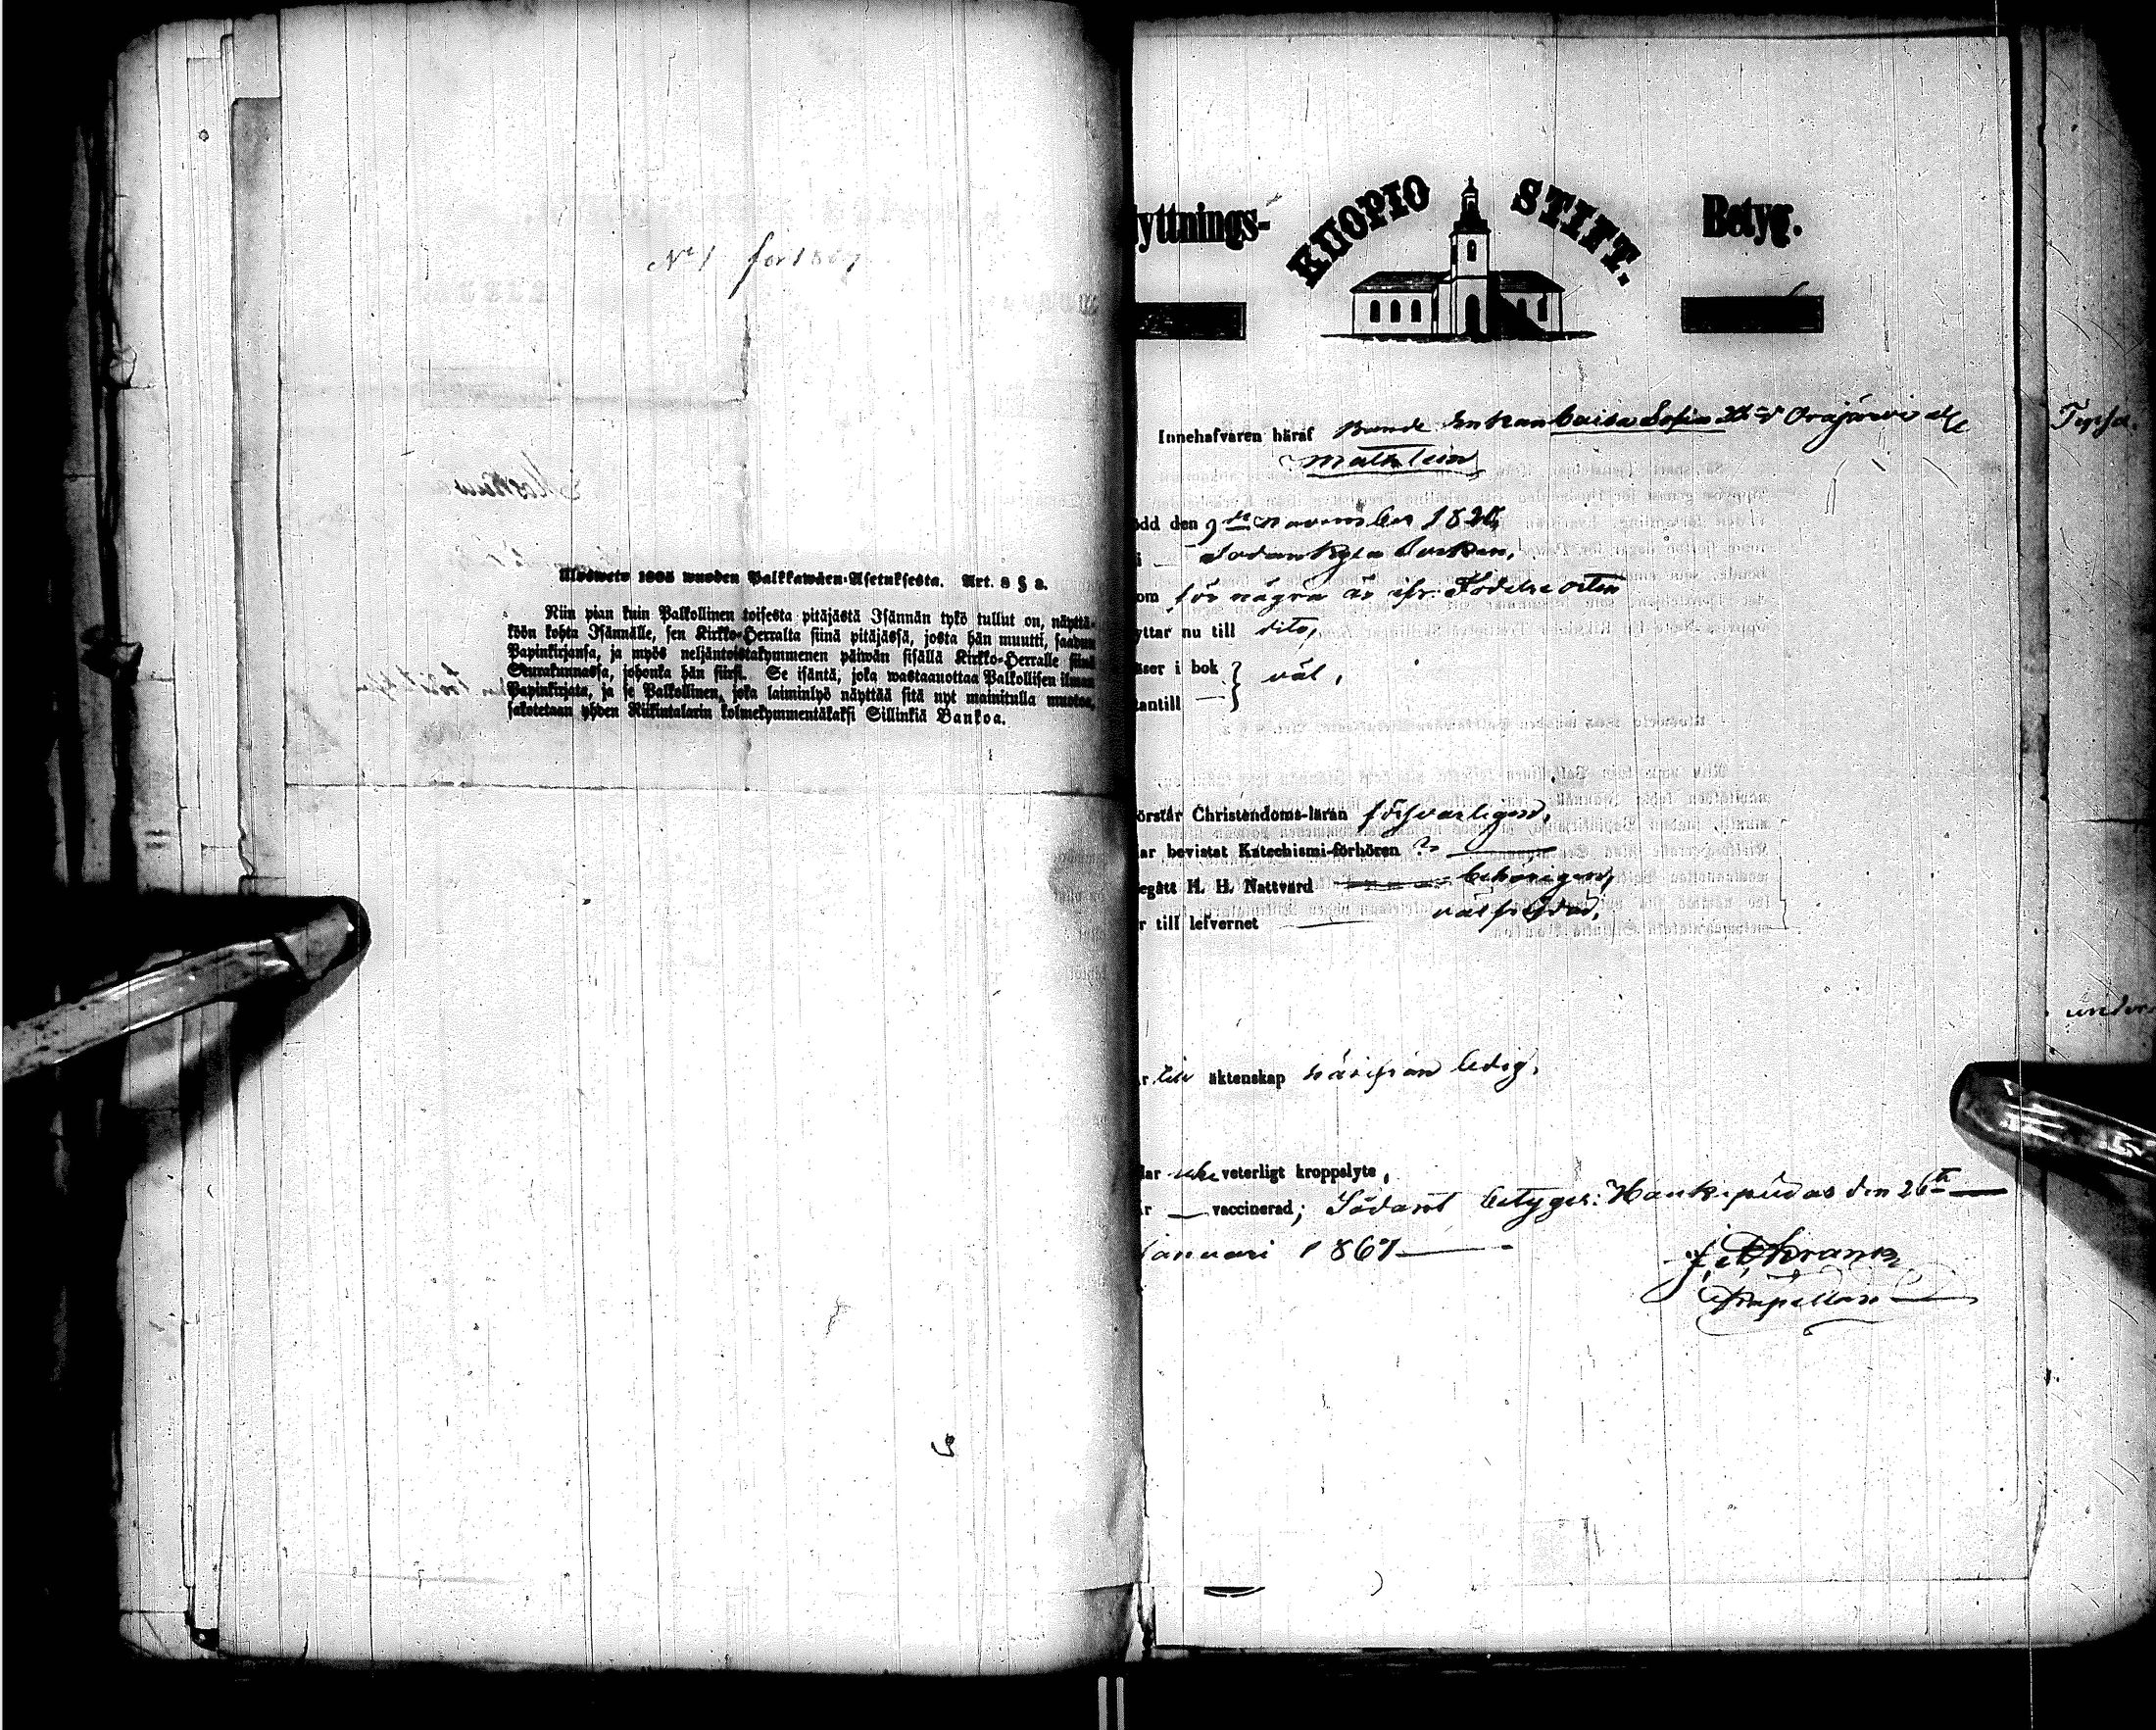 No 1 for 1867
Uloswetv 1805 wuoden Palkkawäen-Asetuksesta. Art. 8 § 2.
Niin pian kuin Palkollinen toisesta pitäjästä Isännän tykö tullut on, näyttä-
köön kohta Isännälle, sen Kirkko-Herralta siinä pitäjässä, josta hän muutti, saadun
Papinkirjansa, ja myös neljäntoistakymmenen päiwän sisällä Kirkko-Herralle siinä
Seurakunnassa, johonka hän siirsi. Se isäntä, joka wastaanottaa Palkollisen ilman
Papinkirjata, ja se Palkollinen, joka laiminlyö näyttää sitä nyt mainitulla muotoa,
sakotetaan yhden Riikintalarin kolmekymmentäkaksi Sillinkiä Bankoa.
lyttnings- KUOPIO STIFT. Betyg.
Innehafvaren häraf Bonde Enkan Caisa Sofia Orajärvi
ödd den 9de november 182
i Sodankylä Socken,
om för några år ifr. Födelseorten
yttar nu till dito,
äser i bok } väl,
tantill
örstår Christendoms-läran försvarligen,
ar bevistat Katechismi-förhören
egått H. H. Nattvard behörigen,
r till lefvernet välfrejdad,
r till äktenskap härifrån ledig.
ar icke veterligt kroppslyte,
r vaccinerad; Sådant betygar: Haukipudas den 26te
Januari 1867
Kapellan